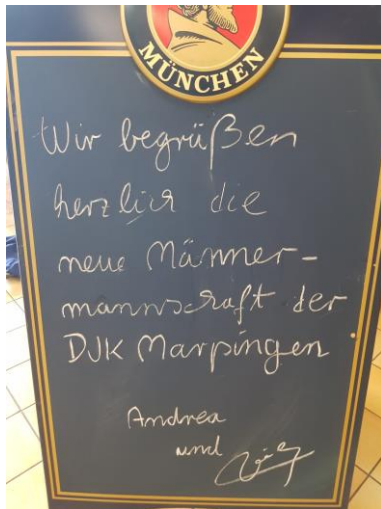 MÜNCHEN
Wir begrüßen
herzlich die
neue Männer-
mannschaft der
DJK Marpingen
Andrea
und